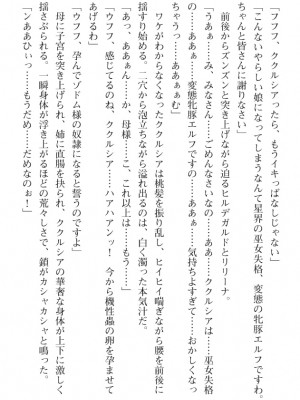 「フフフ、ククルシアったら、もうイキっぱなしじゃない」
「こんないやらしい娘になってしまうなんて星界の巫女失格、変態の牝豚エルフですわ。
ちゃんと皆さんに謝りなさい」
前後からズンズンと突き上げながら迫るヒルデガルドとリリーナ。
「うああ……み、みなさん……ごめんなさいなの……ああ……ククルシアは……巫女失格
の……ああぁ……変態牝豚エルフですの……ああぁ……気持ちよすぎて……おかしくなっ
ちゃうっ……あああぁぁむ」
ワケがわからなくなったククルシアは桃髪を振り乱し、ヒイヒイ喘ぎながら腰を前後に
揺すり始める。二穴から泡立ちながら溢れ出るのは、白く濁った本気汁だ。
「あっ、あああぁん……か、母様……こ、これ以上は……もう……」
「ウフフ、感じてるのね、ククルシア……ハアハアンッ！　今から機性蟲の卵を孕ませて
あげるわ」
「ウフフ、孕んでゾドム様の奴隷になると誓うのですよ」
母に子宮を突き上げられ、姉に直腸を抉られ、ククルシアの華奢な身体が上下に激しく
揺さぶられる。一瞬身体が浮き上がるほどの荒々しさで、鎖がカシャカシャと鳴った。
「ンああひぃっ……もうだめ……だめなのぉ！」